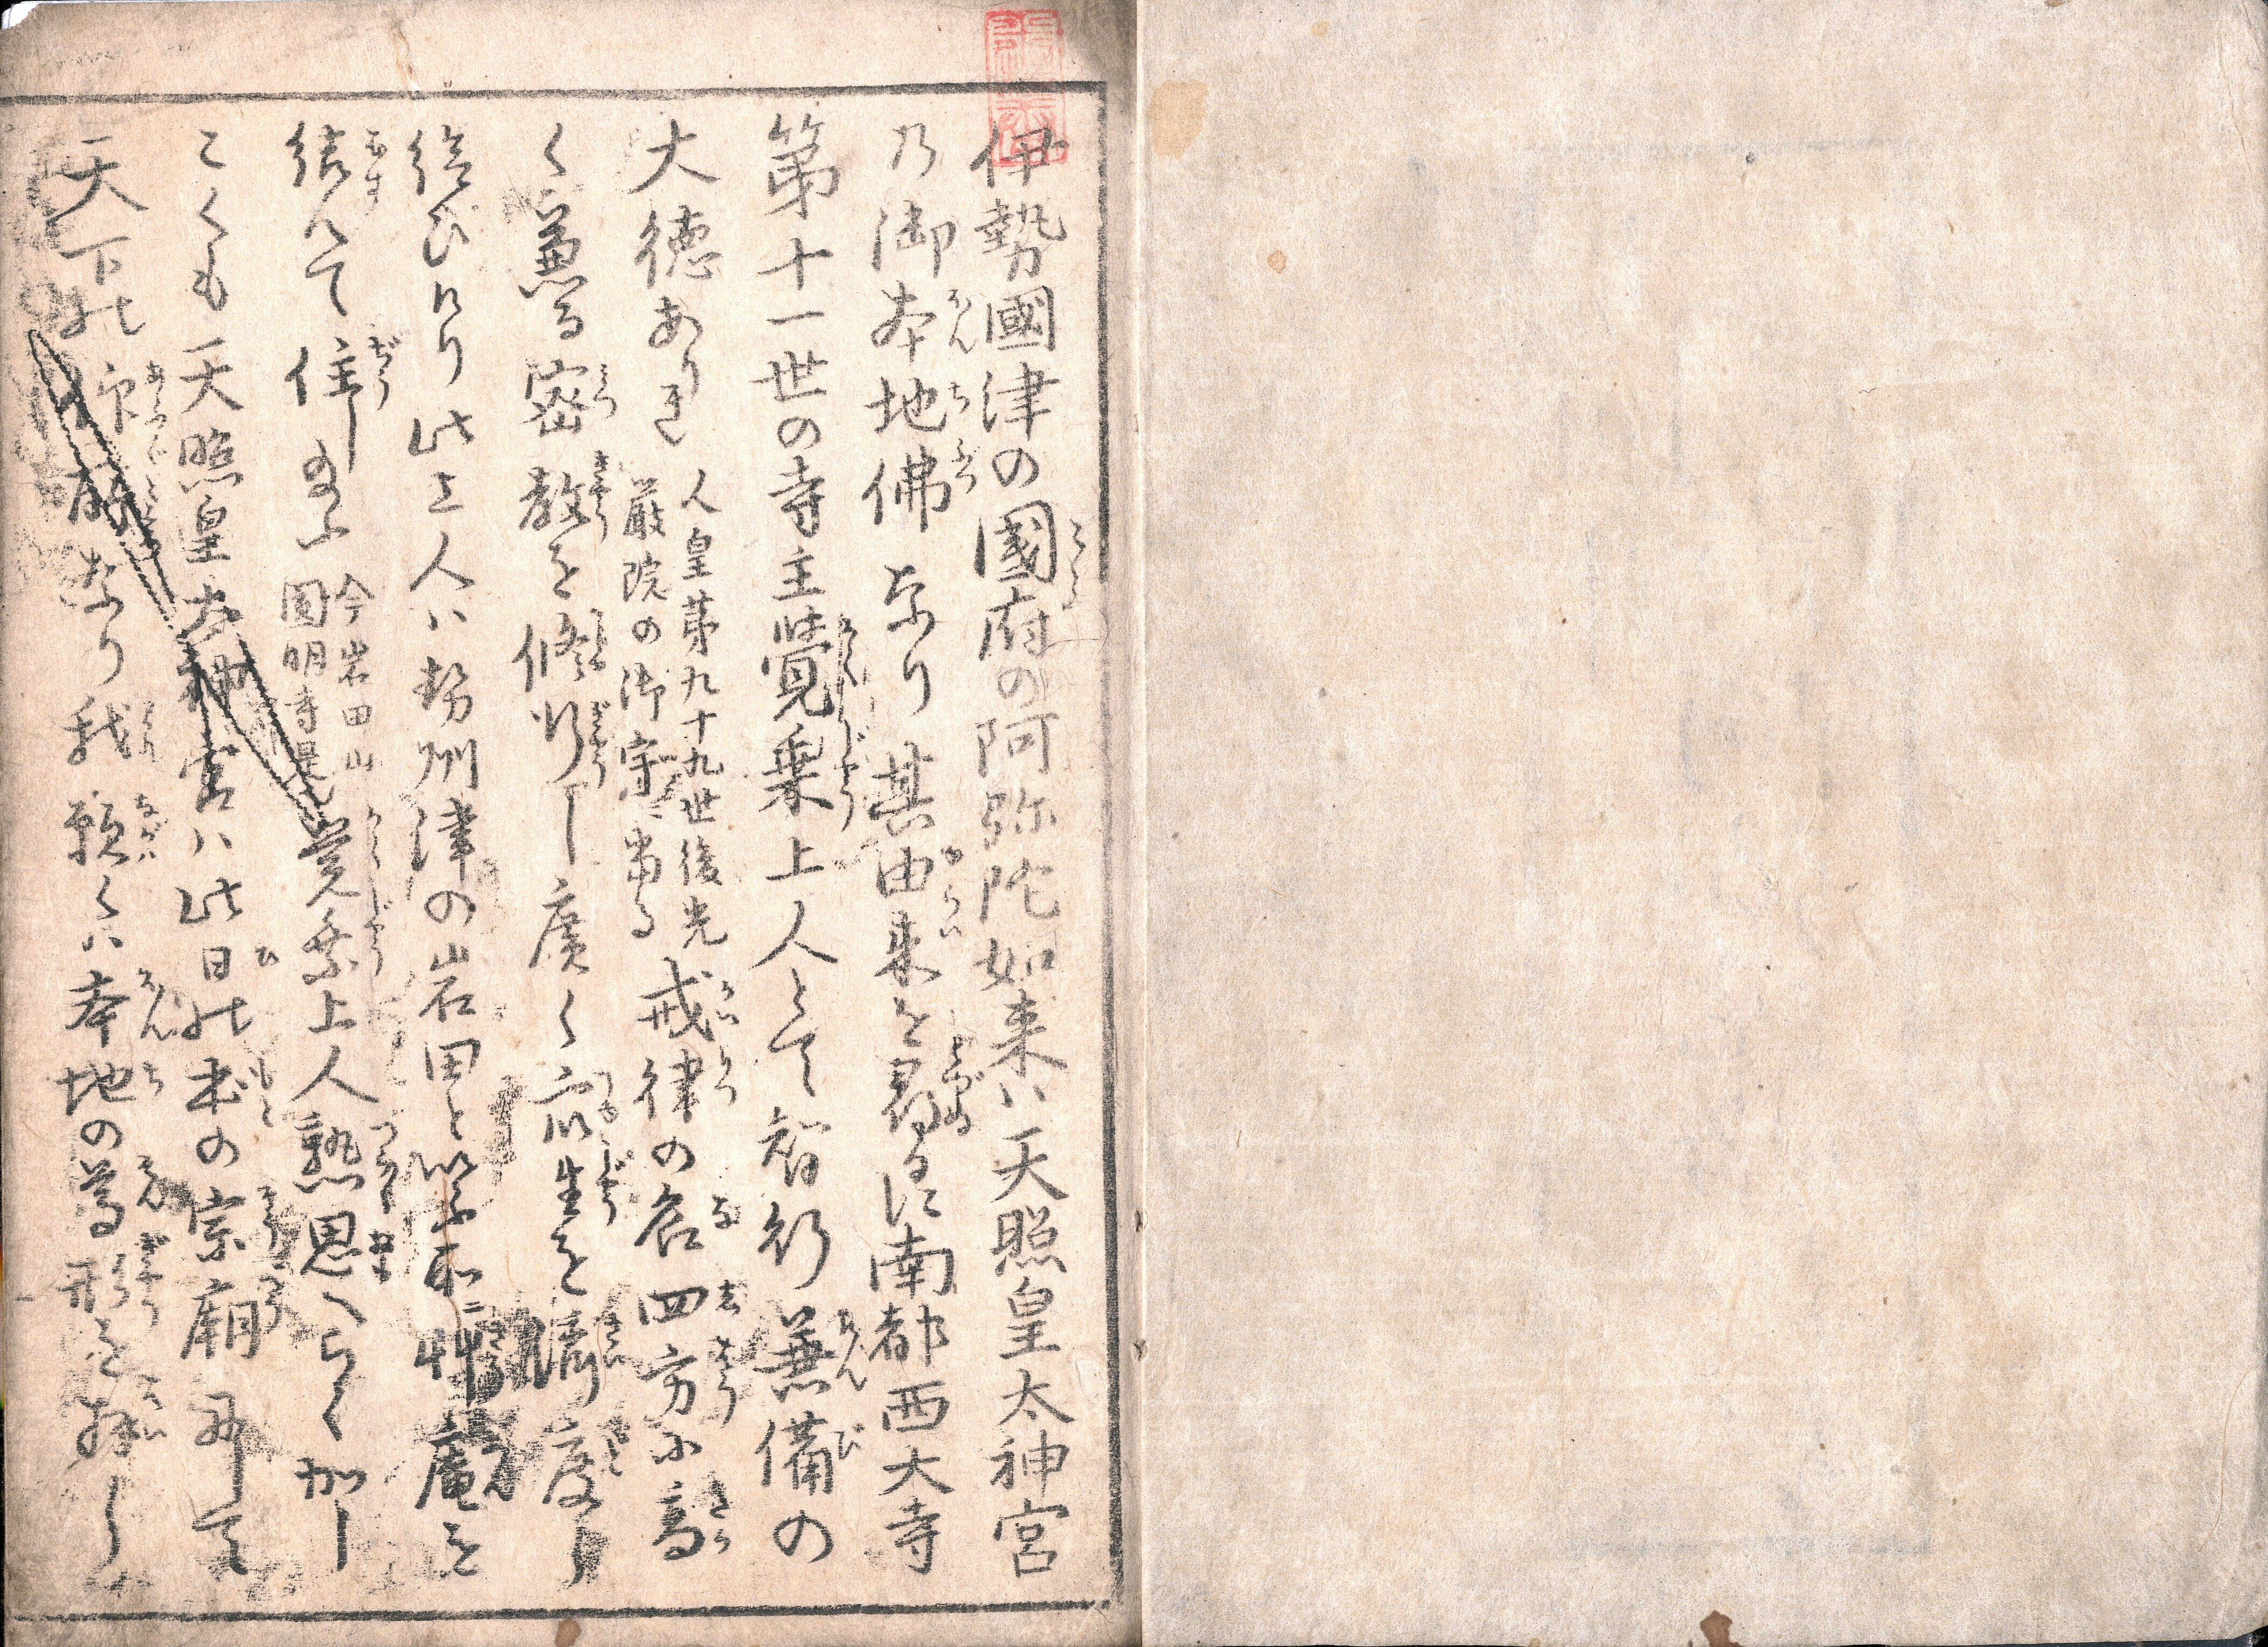 伊勢國津の國府の阿弥陀如来ハ天照皇太神宮
乃御本地佛なり其由来を尋るに南都西大寺
第十一世の寺主覺乗上人とて智行兼備の
大徳ありき
人皇第九十九世後光
厳院の御宇ニ當る
戒律の名四方に高
く蕙る密教を修行し廣く衆生を濟度し
給ひけり此上人ハ勢州津の岩田と以ふ所ニ艸庵を
結んて住し給ふ
今岩田山
圓明寺是也
覚乗上人熟思へらく加し
こくも天照皇太神宮ハ此日の本の宗廟にして
天下の なり我願くハ本地の尊形を拝し